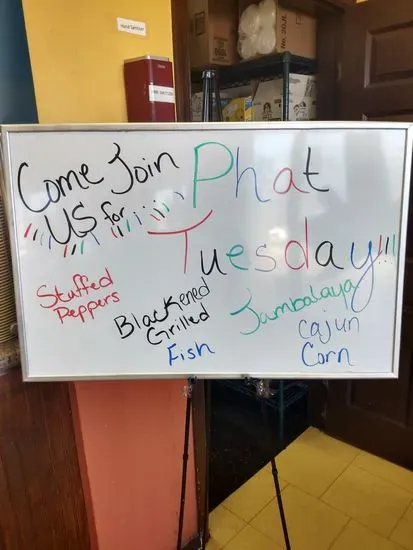 Hand Sanitizer
Come Join
US for
Phat
Tuesday!!!
Stuffed
Peppers
Blackened
Grilled
Fish
Jambalaya
Cajun
Corn